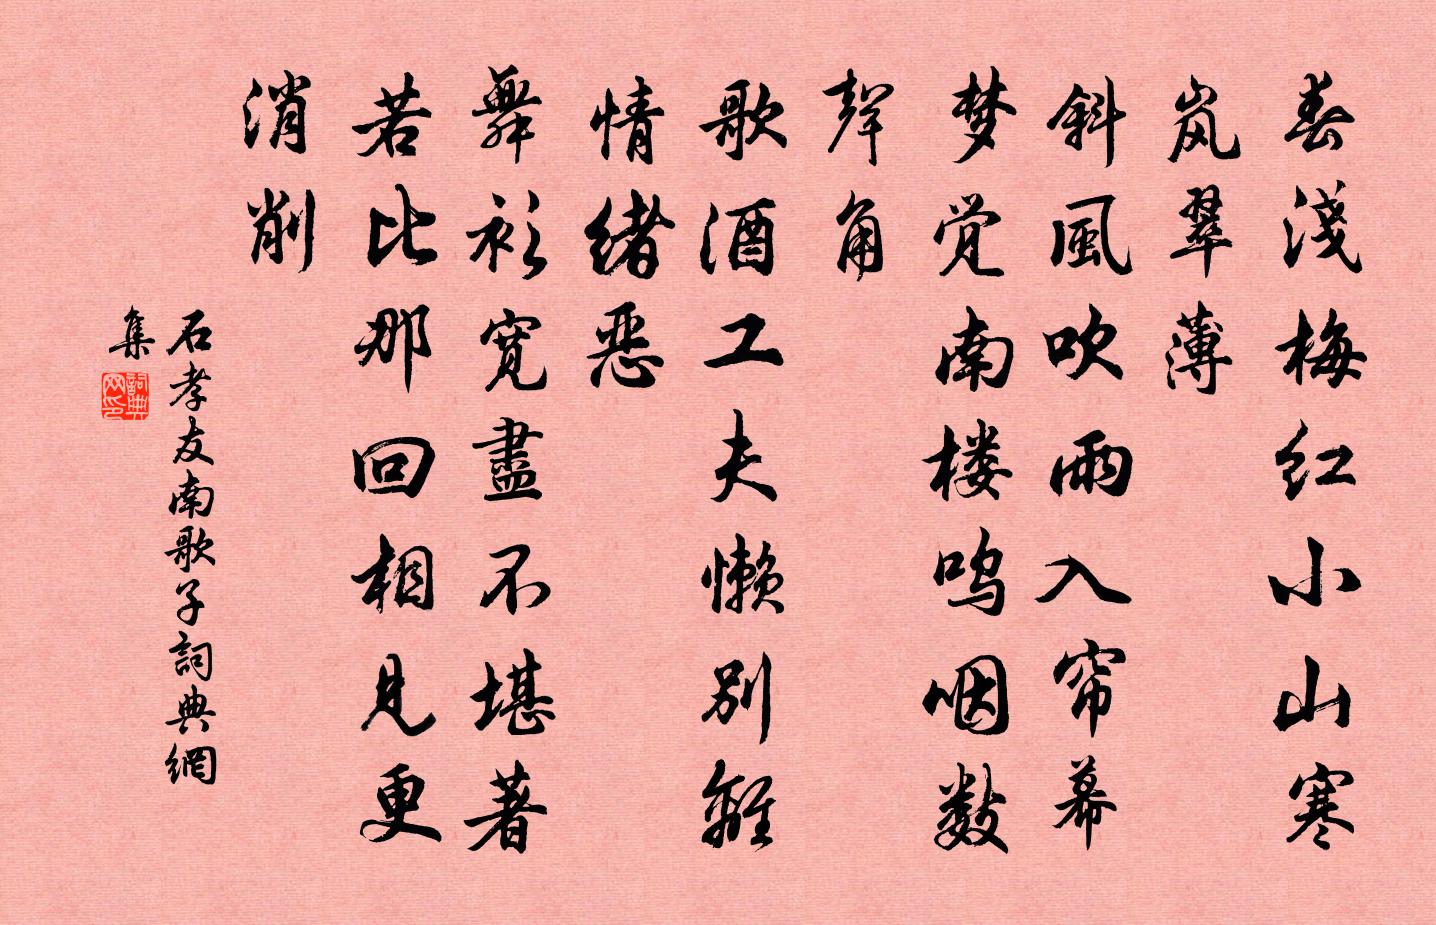 春淺梅红小山寒
岚翠薄
斜風吹雨入帘幕
梦觉南楼呜咽数
聲角
歌酒工夫懒别離
情绪恶
舞衫寬盡不堪著
若比那回相見更
消削
石孝友南歌子詞典網
集
詞典网印